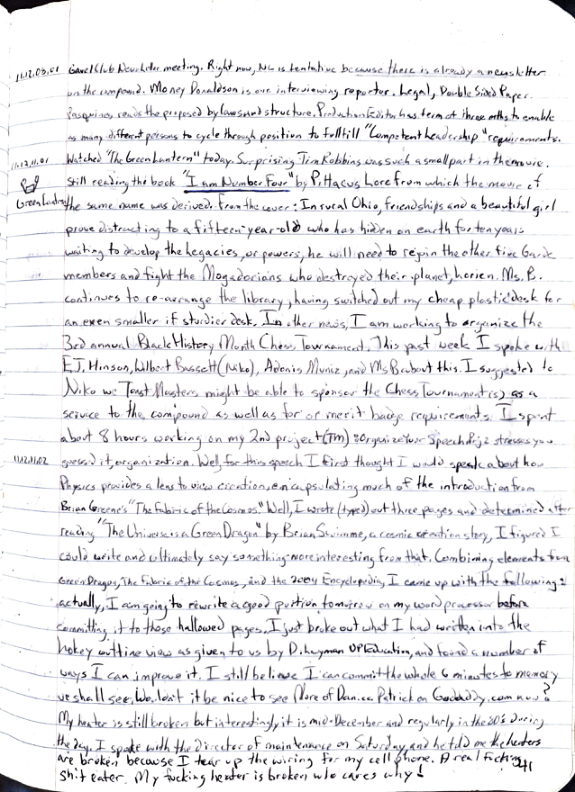 11.12.03.01 Gavel Club Newsletter meeting. Right now, NL is tentative because there is already a newsletter
on the compound. Money Donaldson is our interviewing reporter. Legal, Double Sided Paper.
Pasquinos reads the proposed bylaws and structure. Production Editor has term of three months to enable
as many different persons to cycle through position to fulfill "Competent headership" requirements.
11.12.11.01 Watched "The Green Lantern" today. Surprising Tim Robbins was such a small part in the movie.
Still reading the book "I am Number Four" by Pittacus Lore from which the movie of
Green Lantern the same name was derived. From the cover: In rural Ohio, friendships and a beautiful girl
prove distracting to a fifteen year old who has hidden on earth for ten years
waiting to develop the legacies, or powers, he will need to rejoin the other five Garde
members and fight the Mogadorians who destroyed their planet, Lorien. Ms. B.
continues to re-arrange the library, having switched out my cheap plastic desk for
an even smaller if sturdier desk. In other news, I am working to organize the
3rd annual Black History Month Chess Tournament. This past week I spoke with
E.J. Hinson, Wilbert Bassett (Niko), Adenis Muniz, and Ms B about this. I suggested to
Niko we Toast Masters might be able to sponsor the Chess Tournament(s) as a
service to the compound as well as for or merit badge requirements. I spent
about 8 hours working on my 2nd project (TM) Organize Your Speech. Proj 2 stresses you
11.12.11.02 guessed it, organization. Well, for this speech I first thought I would speak about how
Physics provides a lens to view creation, encapsulating much of the introduction from
Brian Greene's "The Fabric of the Cosmos". Well, I wrote (typed) out three pages and determined after
reading "The Universe is a Green Dragon" by Brian Swimme, a cosmic creation story, I figured I
could write and ultimately say something more interesting from that. Combining elements from
Green Dragon, The Fabric of the Cosmos, and the 2004 Encyclopedia, I came up with the following:
actually, I am going to rewrite a good portion tomorrow on my word processor before
committing it to those hallowed pages. I just broke out what I had written into the
hokey outline view as given to us by D. UP Education, and found a number of
ways I can improve it. I still believe I can commit the whole 6 minutes to memory
we shall see. Won't it be nice to see More of Danica Patrick on Godaddy.com now?
My heater is still broken but interestingly, it is mid-December and regularly in the 80's during
the day. I spoke with the Director of maintenance on Saturday, and he told me the heaters
are broken because I tear up the wiring for my cell phone. A real fucking
shit eater. My fucking heater is broken who cares why!